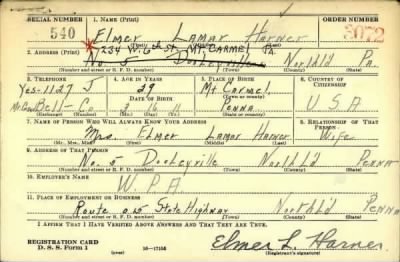 SERIAL NUMBER 1. NAME (Print) ORDER NUMBER
540 Elmer Lamar Harner 3072
(First) (Middle) (Last)
234 W. 6th St. Mt. Carmel Pa.
2. ADDRESS (Print)
No. 5 Dooleyville North'l'd Pa.
(Number and street or R. F. D. number) (Town) (County) (State)
3. TELEPHONE 4. AGE IN YEARS 5. PLACE OF BIRTH 6. COUNTRY OF CITIZENSHIP
Yes-1127 J 29 Mt Carmel,
DATE OF BIRTH (Town or county)
Bell - Co. Penna U S A
(Mo.) (Day) (Yr.) (State or country)
7. NAME OF PERSON WHO WILL ALWAYS KNOW YOUR ADDRESS 8. RELATIONSHIP OF THAT PERSON
Mrs. Elmer Lamar Harner Wife
(Mr., Mrs., Miss) (First) (Middle) (Last)
9. ADDRESS OF THAT PERSON
No. 5 Dooleyville North'l'd Penna
(Number and street or R. F. D. number) (Town) (County) (State)
10. EMPLOYER'S NAME
W. P. A.
11. PLACE OF EMPLOYMENT OR BUSINESS
Route State Highway North'l'd Penna
(Number and street or R. F. D. number) (Town) (County) (State)
I AFFIRM THAT I HAVE VERIFIED ABOVE ANSWERS AND THAT THEY ARE TRUE.
REGISTRATION CARD
D. S. S. Form 1 (over) 16-17105 Elmer L. Harner
(Registrant's signature)